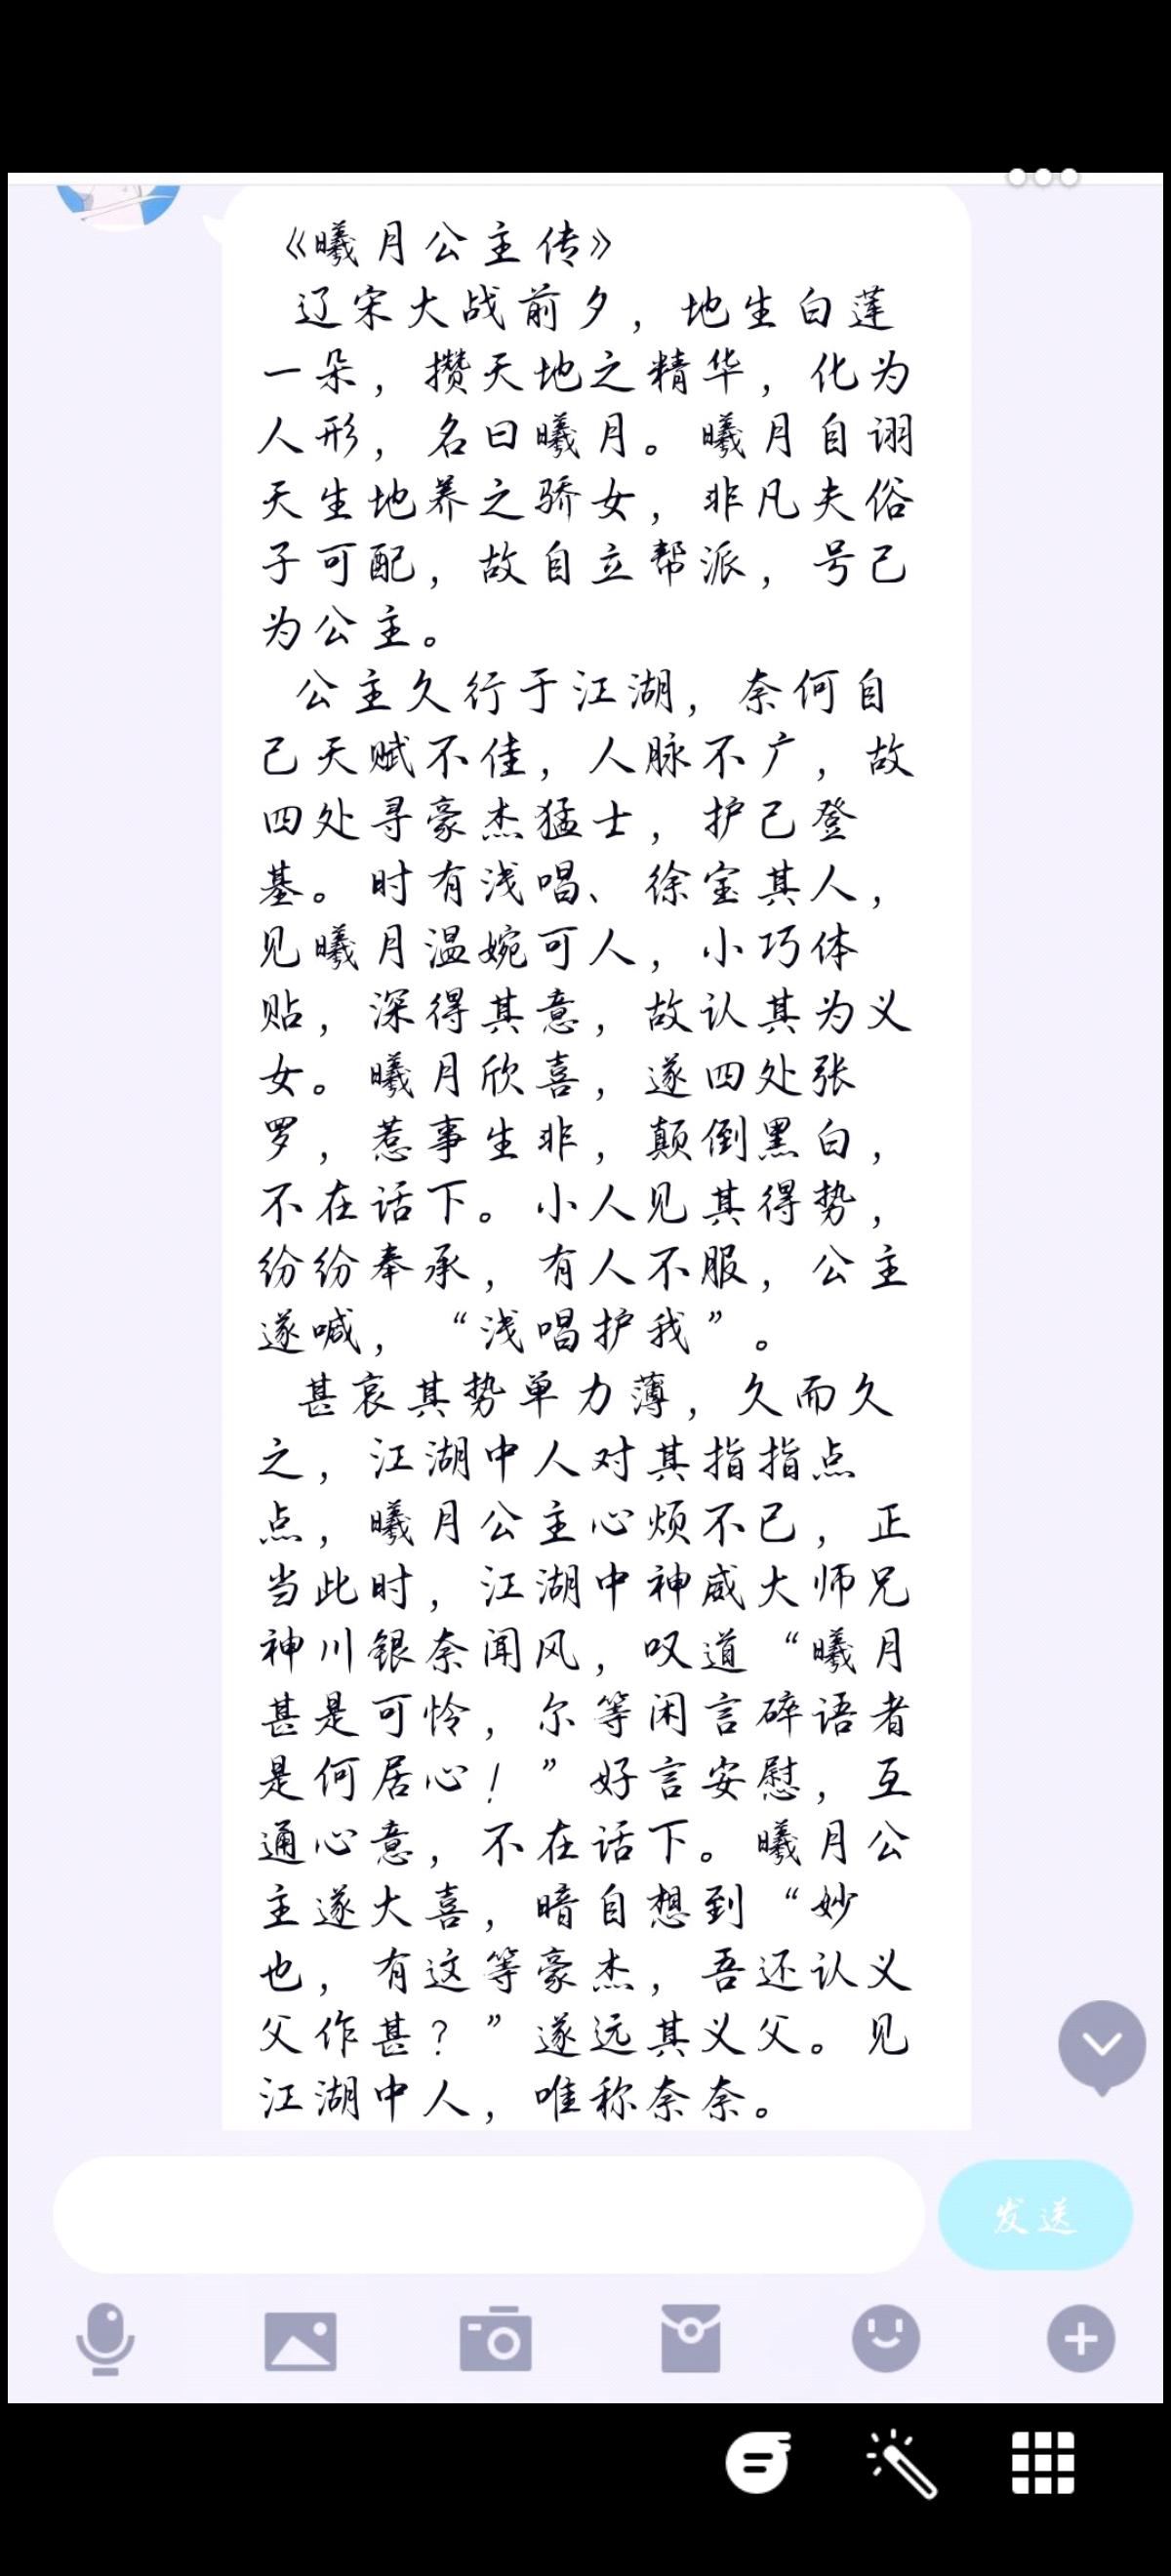 《曦月公主传》
辽宋大战前夕，地生白莲
一朵，攒天地之精华，化为
人形，名曰曦月。曦月自诩
天生地养之骄女，非凡夫俗
子可配，故自立帮派，号己
为公主。
公主久行于江湖，奈何自
己天赋不佳，人脉不广，故
四处寻豪杰猛士，护己登
基。时有浅唱、徐宝其人，
见曦月温婉可人，小巧体
贴，深得其意，故认其为义
女。曦月欣喜，遂四处张
罗，惹事生非，颠倒黑白，
不在话下。小人见其得势，
纷纷奉承，有人不服，公主
遂喊，“浅唱护我”。
甚哀其势单力薄，久而久
之，江湖中人对其指指点
点，曦月公主心烦不已，正
当此时，江湖中神威大师兄
神川银奈闻风，叹道“曦月
甚是可怜，尔等闲言碎语者
是何居心！”好言安慰，互
通心意，不在话下。曦月公
主遂大喜，暗自想到“妙
也，有这等豪杰，吾还认义
父作甚？”遂远其义父。见
江湖中人，唯称奈奈。
发送